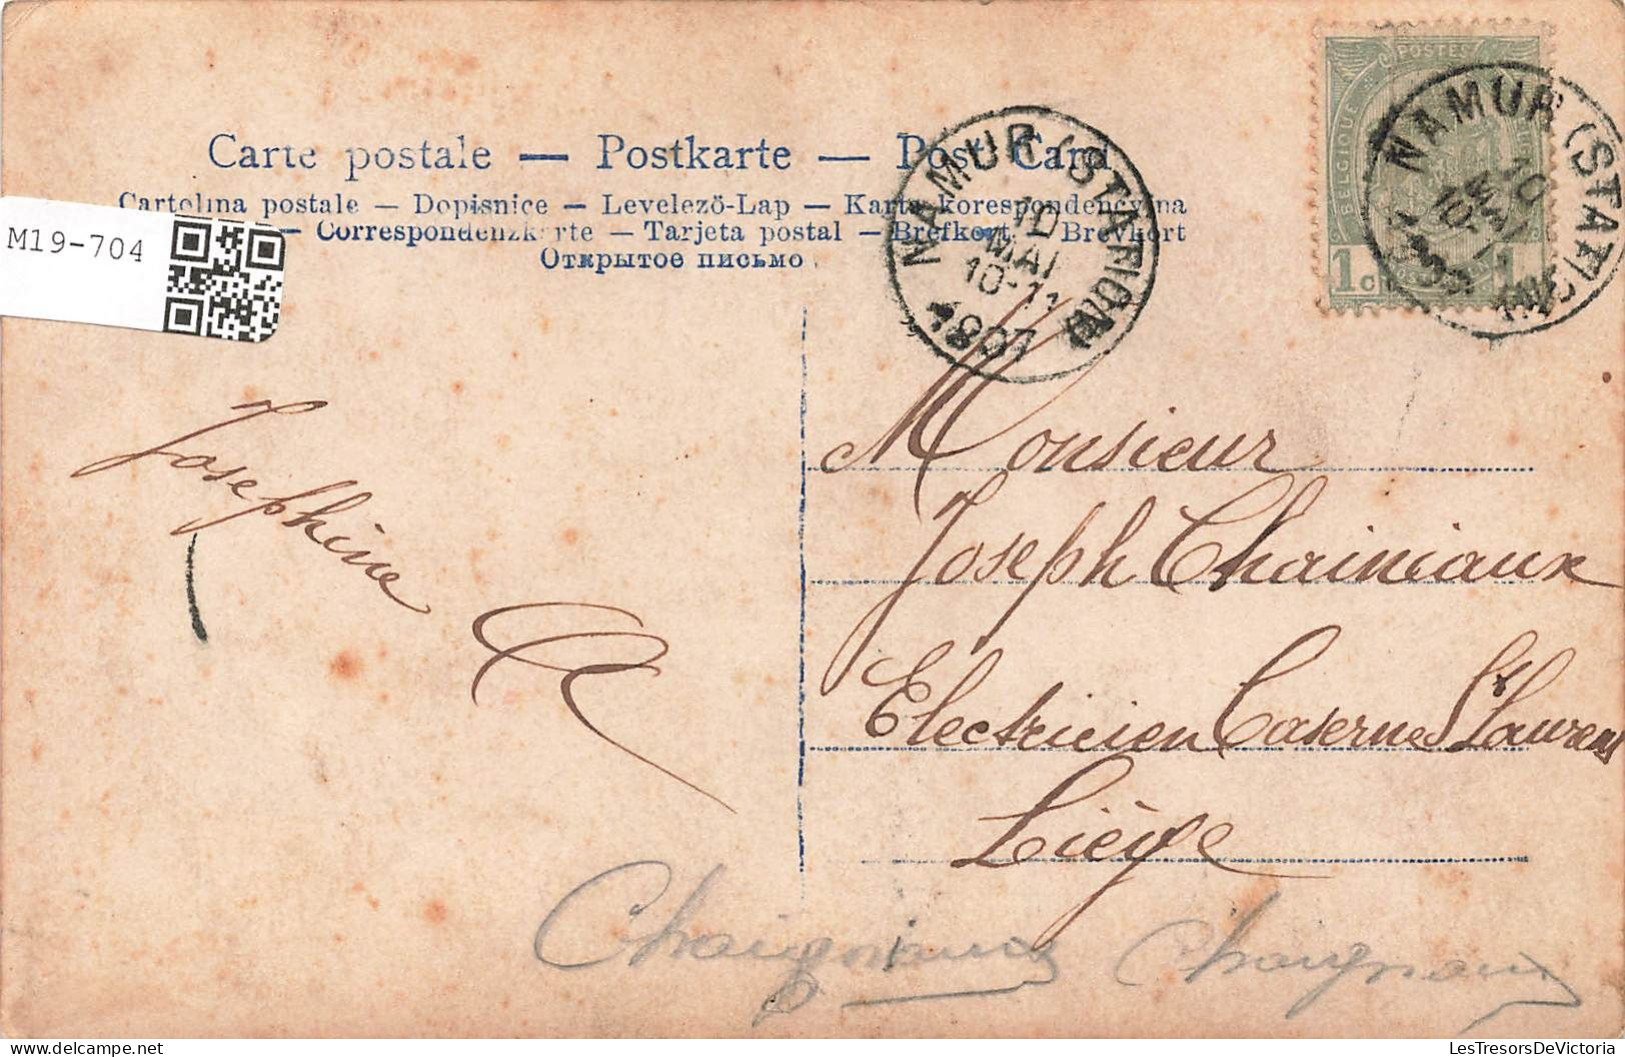 Carte postale — Postkarte — Post Card
Cartolina postale — Dopisnice — Levelező-Lap — Karta korespondencyjna
— Correspondenzkarte — Tarjeta postal — Brefkort — Brevkort
Открытое письмо
M19-704
POSTES
BELGIQUE
1 c
NAMUR (STATION)
10
MAI
10-11
1907
NAMUR (STATION)
10
MAI
Josephine
Monsieur
Joseph Chainiaux
Electricien Caserne St Laurent
Liège
LesTresorsDeVictoria